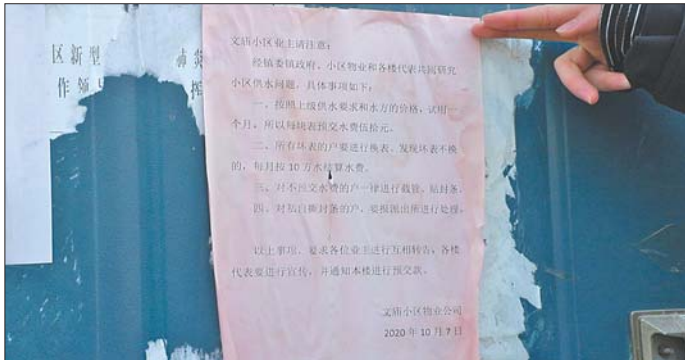 区新型
作领
文庙小区业主请注意：
经镇委镇政府、小区物业和各楼代表共同研究
小区供水问题，具体事项如下：
一、按照上级供水要求和水方的价格，试用一
个月，所以每块表预交水费伍拾元。
二、所有坏表的户要进行换表，发现坏表不换
的，每月按 10 方水结算水费。
三、对不预交水费的户一律进行截管，贴封条。
四、对私自撕封条的户，要报派出所进行处理。
以上事项，要求各位业主进行互相转告，各楼
代表要进行宣传，并通知本楼进行预交款。
文庙小区物业公司
2020 年 10 月 7 日